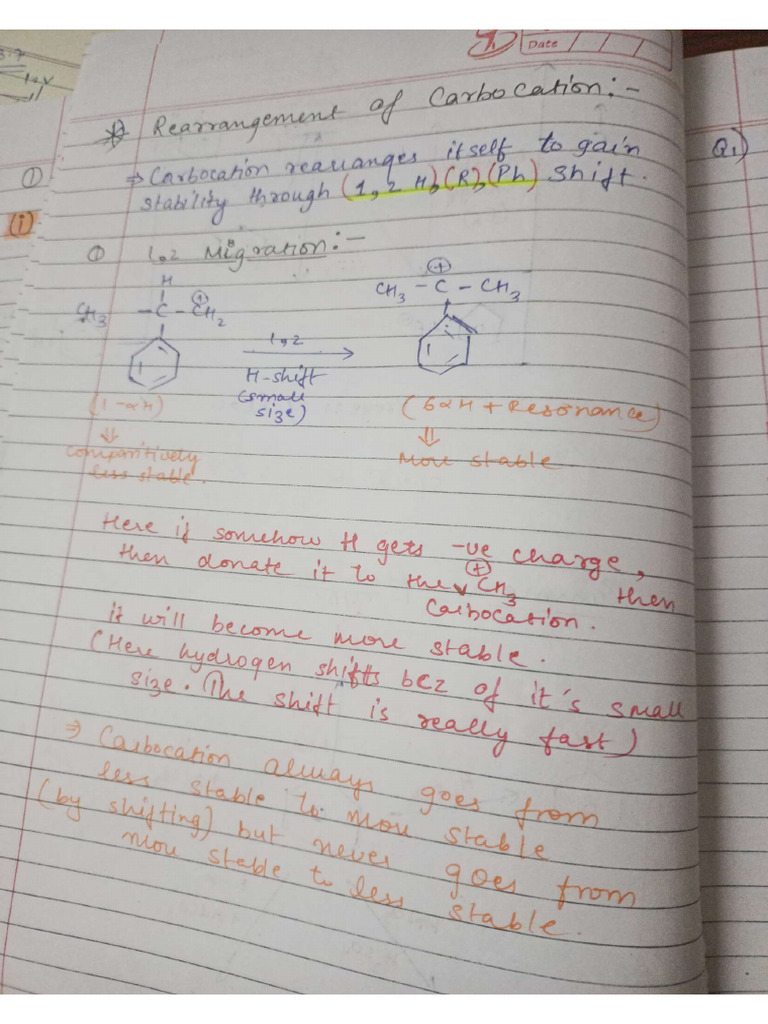 Date
3.7
* Rearrangement of Carbocation:-
Q.1)
①
⇒ Carbocation rearranges itself to gain
stability through (1,2 H), (R), (Ph) shift.
(i)
① 1,2 Migration:-
H
CH3 -C - CH2
⊕
⊕
CH3 - C - CH3
1,2
H-shift
(small
size)
(1-αH)
(6αH + Resonance)
⇓
⇓
Comparitively
less stable.
More stable
Here if somehow H gets -ve charge,
then donate it to the ⊕CH3 then
Carbocation.
it will become more stable.
(Here hydrogen shifts bcz of it's small
size. The shift is really fast)
⇒ Carbocation always goes from
less stable to more stable
(by shifting) but never goes from
more stable to less stable.